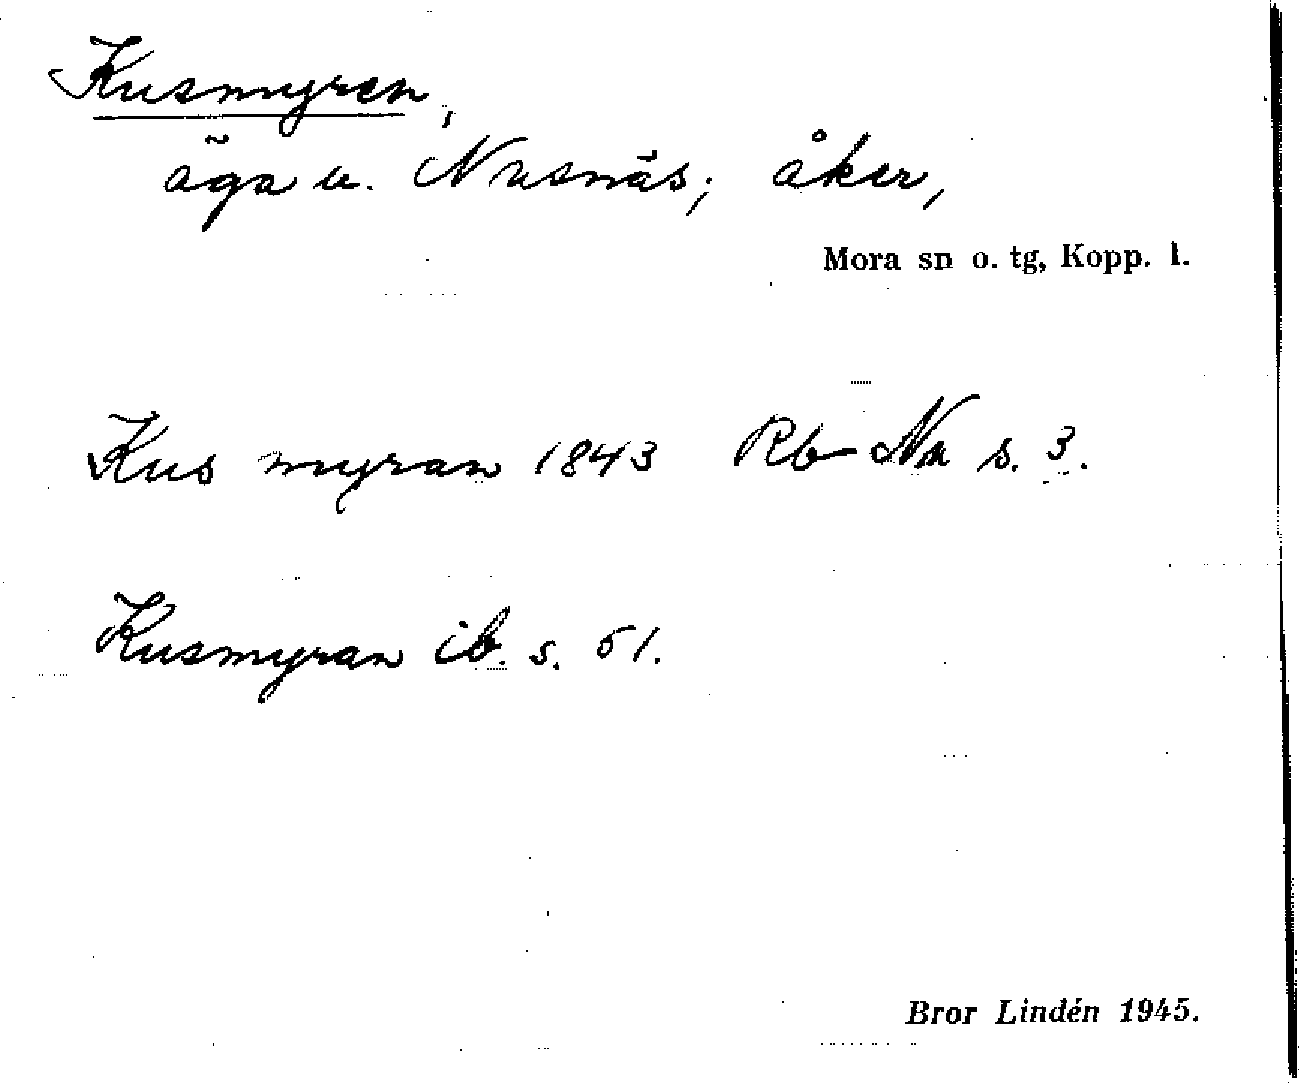 Kusmyren,
äga u. Nusnäs; åker,
Mora sn o. tg, Kopp. l.
Kus myran 1843 Rb Nn s. 3.
Kusmyran ib. s. 51.
Bror Lindén 1945.